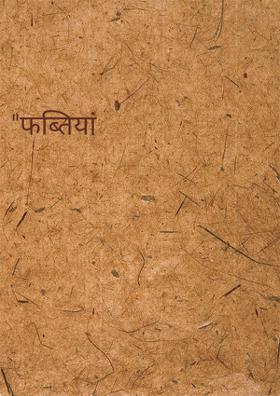 "फब्तिया